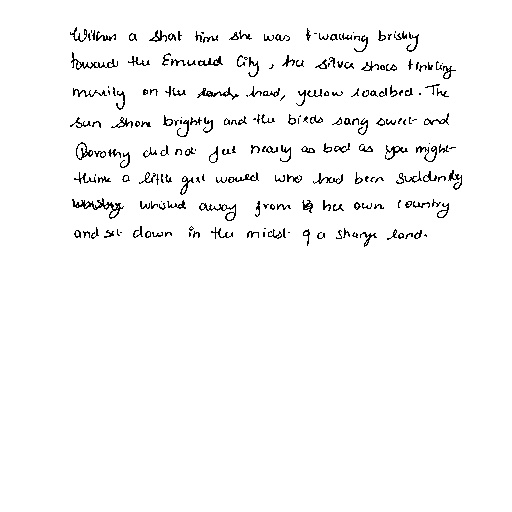 Within a short time she was walking briskly
toward the Emerald City, her silver shoes tinkling
merrily on the hard, yellow roadbed. The
sun shone brightly and the birds sang sweet and
Dorothy did not feel nearly as bad as you might
think a little girl would who had been suddenly
whisked away from her own country
and set down in the midst of a strange land.